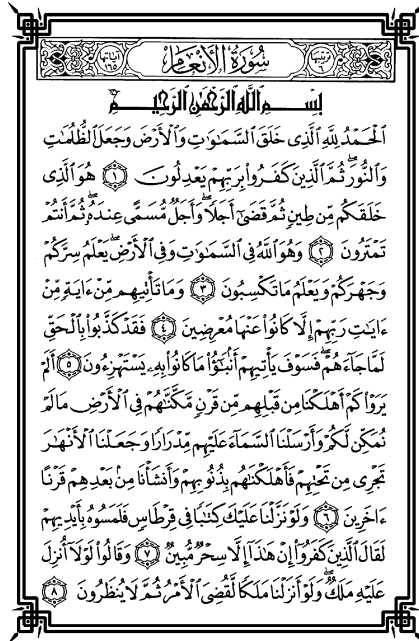 ترتيبها ٦ سُورَةُ الأَنْعَامِ آياتها ١٦٥
بِسْمِ اللَّهِ الرَّحْمَٰنِ الرَّحِيمِ
ٱلْحَمْدُ لِلَّهِ ٱلَّذِى خَلَقَ ٱلسَّمَٰوَٰتِ وَٱلْأَرْضَ وَجَعَلَ ٱلظُّلُمَٰتِ
وَٱلنُّورَ ۖ ثُمَّ ٱلَّذِينَ كَفَرُوا۟ بِرَبِّهِمْ يَعْدِلُونَ ١ هُوَ ٱلَّذِى
خَلَقَكُم مِّن طِينٍ ثُمَّ قَضَىٰٓ أَجَلًا ۖ وَأَجَلٌ مُّسَمًّى عِندَهُۥ ۖ ثُمَّ أَنتُمْ
تَمْتَرُونَ ٢ وَهُوَ ٱللَّهُ فِى ٱلسَّمَٰوَٰتِ وَفِى ٱلْأَرْضِ ۖ يَعْلَمُ سِرَّكُمْ
وَجَهْرَكُمْ وَيَعْلَمُ مَا تَكْسِبُونَ ٣ وَمَا تَأْتِيهِم مِّنْ ءَايَةٍ مِّنْ
ءَايَٰتِ رَبِّهِمْ إِلَّا كَانُوا۟ عَنْهَا مُعْرِضِينَ ٤ فَقَدْ كَذَّبُوا۟ بِٱلْحَقِّ
لَمَّا جَآءَهُمْ ۖ فَسَوْفَ يَأْتِيهِمْ أَنۢبَٰٓؤُا۟ مَا كَانُوا۟ بِهِۦ يَسْتَهْزِءُونَ ٥ أَلَمْ
يَرَوْا۟ كَمْ أَهْلَكْنَا مِن قَبْلِهِم مِّن قَرْنٍ مَّكَّنَّٰهُمْ فِى ٱلْأَرْضِ مَا لَمْ
نُمَكِّن لَّكُمْ وَأَرْسَلْنَا ٱلسَّمَآءَ عَلَيْهِم مِّدْرَارًا وَجَعَلْنَا ٱلْأَنْهَٰرَ
تَجْرِى مِن تَحْتِهِمْ فَأَهْلَكْنَٰهُم بِذُنُوبِهِمْ وَأَنشَأْنَا مِنۢ بَعْدِهِمْ قَرْنًا
ءَاخَرِينَ ٦ وَلَوْ نَزَّلْنَا عَلَيْكَ كِتَٰبًا فِى قِرْطَاسٍ فَلَمَسُوهُ بِأَيْدِيهِمْ
لَقَالَ ٱلَّذِينَ كَفَرُوٓا۟ إِنْ هَٰذَآ إِلَّا سِحْرٌ مُّبِينٌ ٧ وَقَالُوا۟ لَوْلَآ أُنزِلَ
عَلَيْهِ مَلَكٌ ۖ وَلَوْ أَنزَلْنَا مَلَكًا لَّقُضِىَ ٱلْأَمْرُ ثُمَّ لَا يُنظَرُونَ ٨